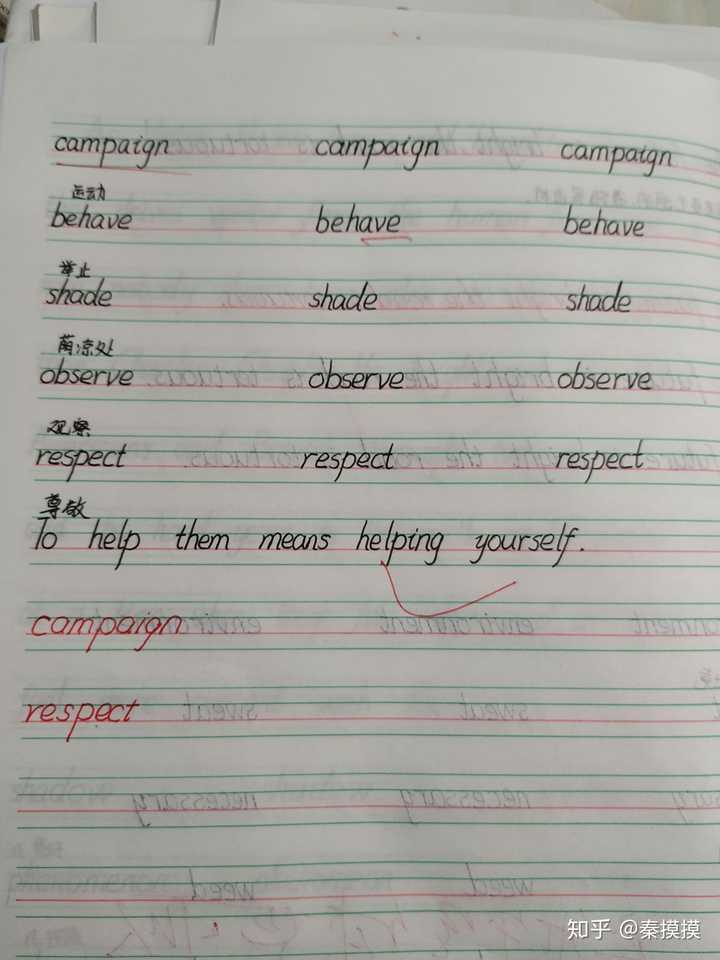 campaign campaign campaign
运动
behave behave behave
举止
shade shade shade
荫凉处
observe observe observe
观察
respect respect respect
尊敬
To help them means helping yourself.
campaign
respect
知乎 @秦摸摸